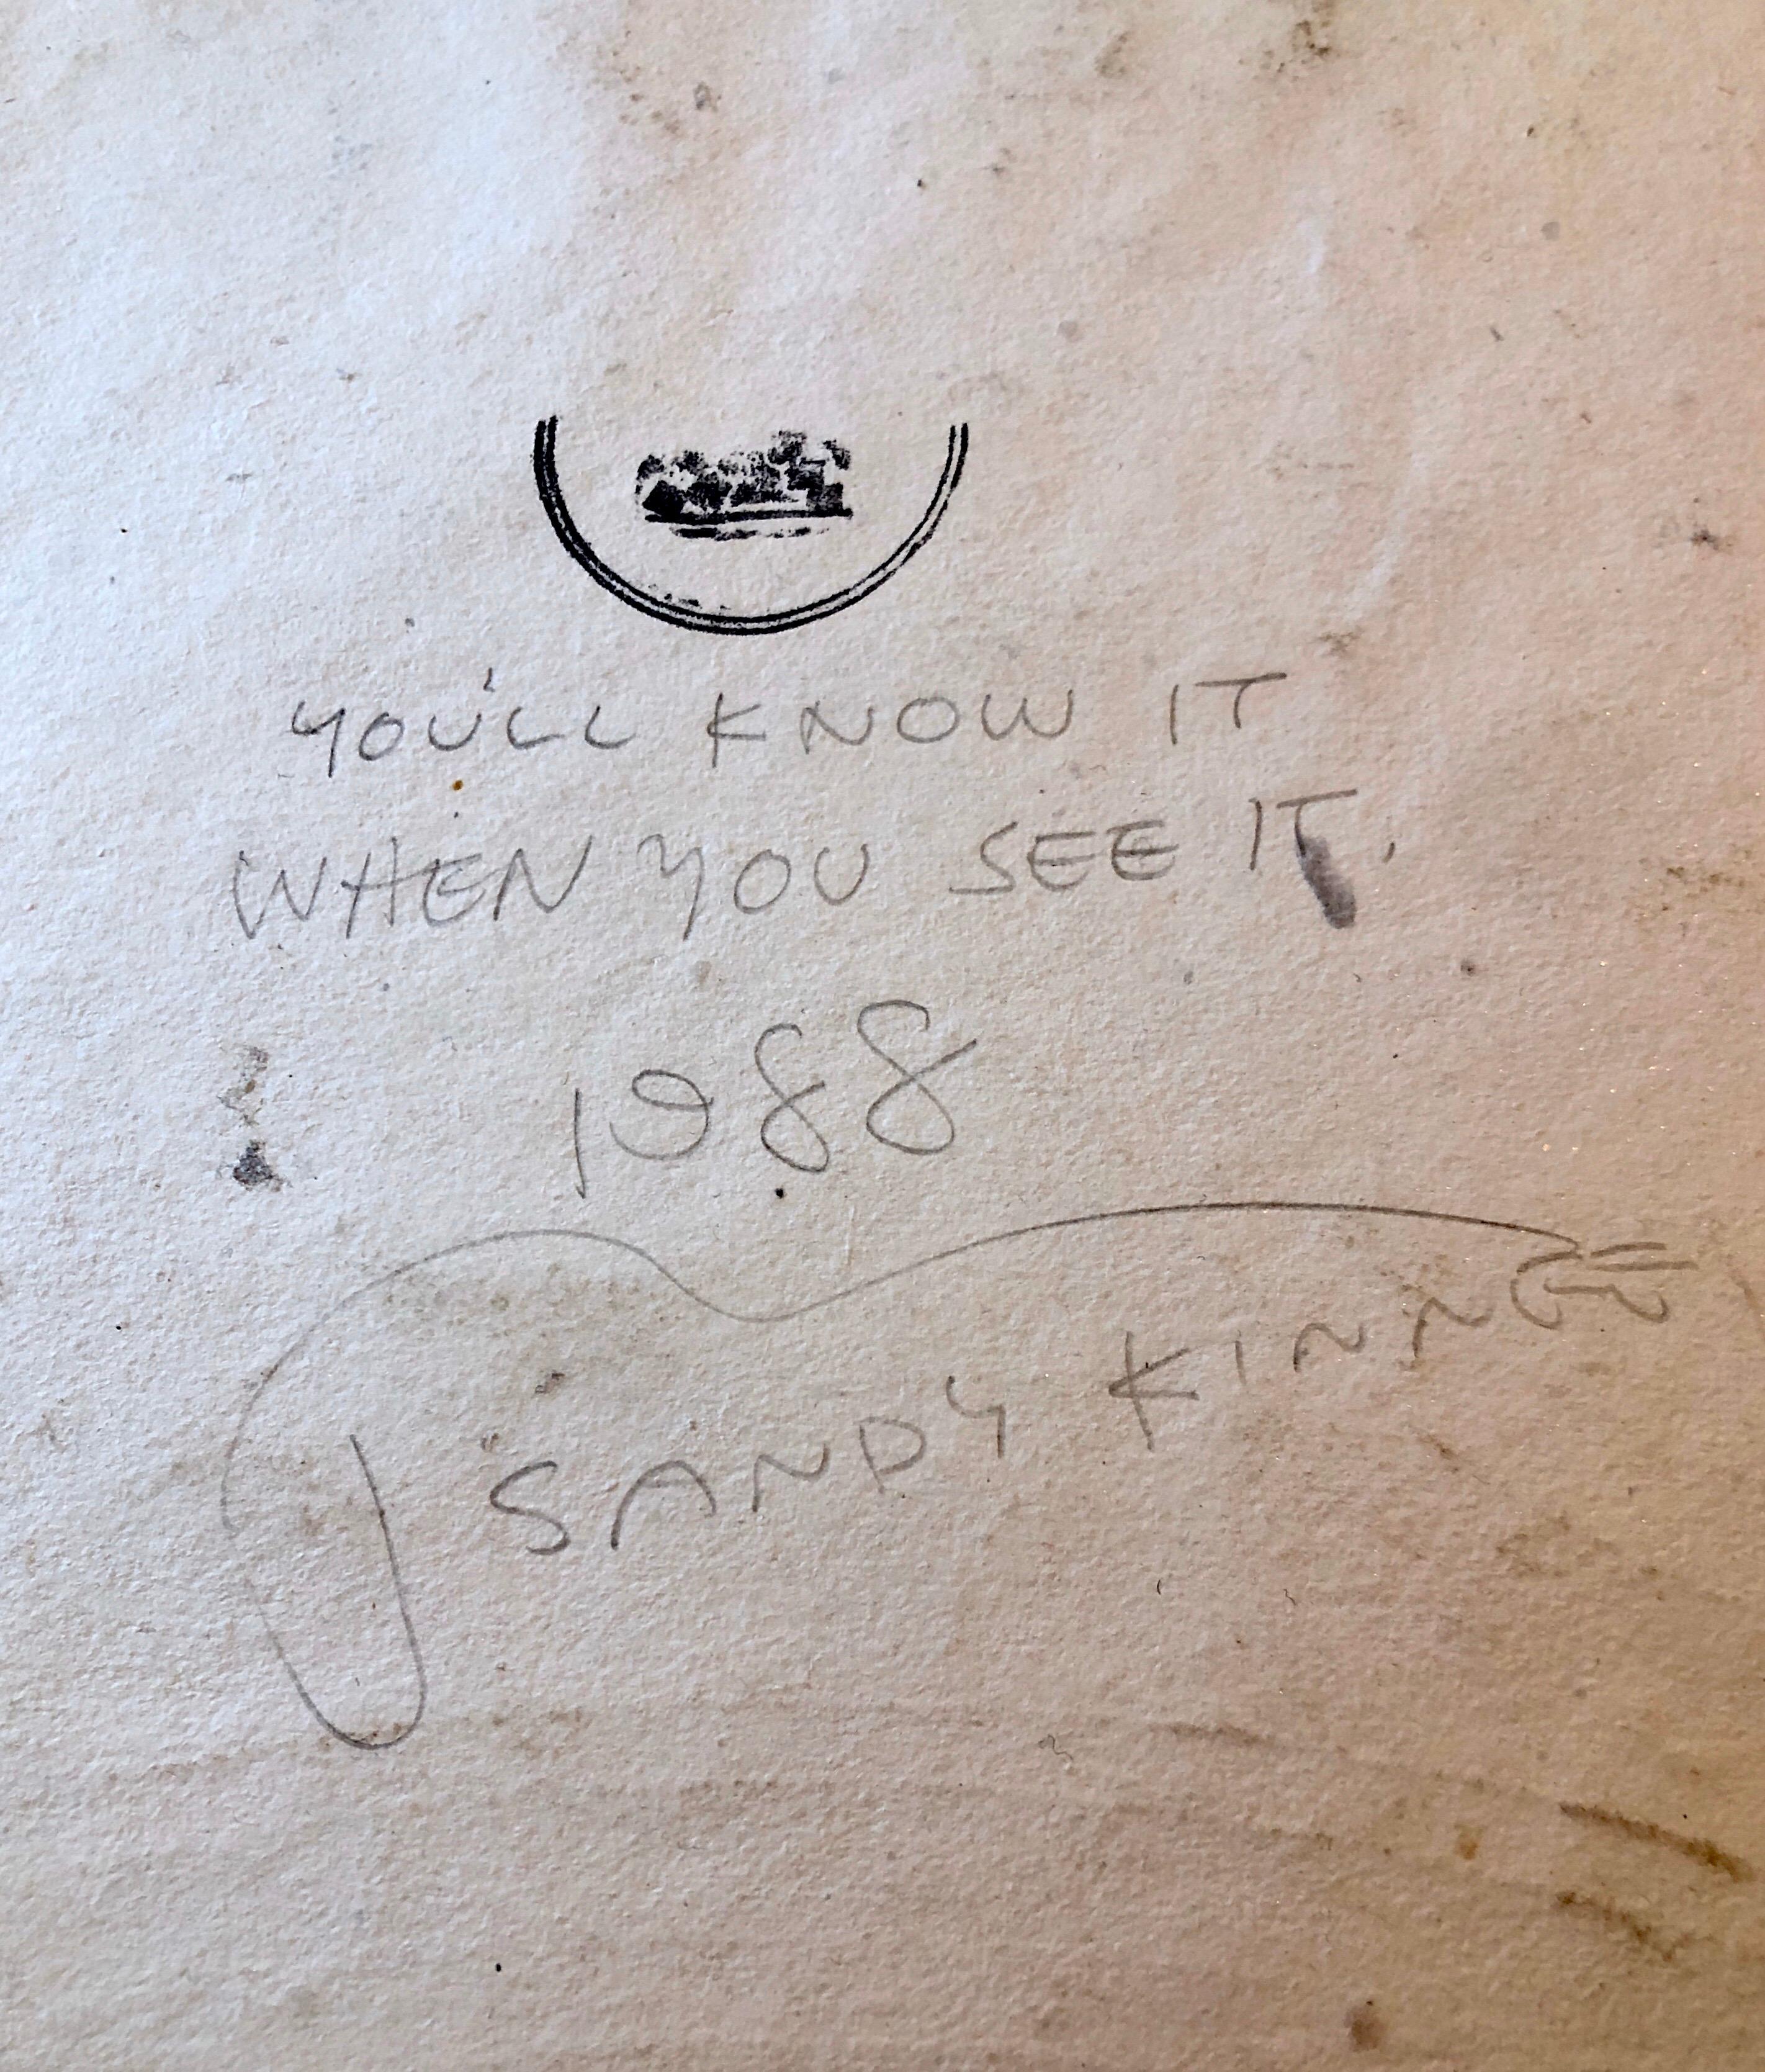 YOU'LL KNOW IT
WHEN YOU SEE IT.
1988
SANDY KINNEE